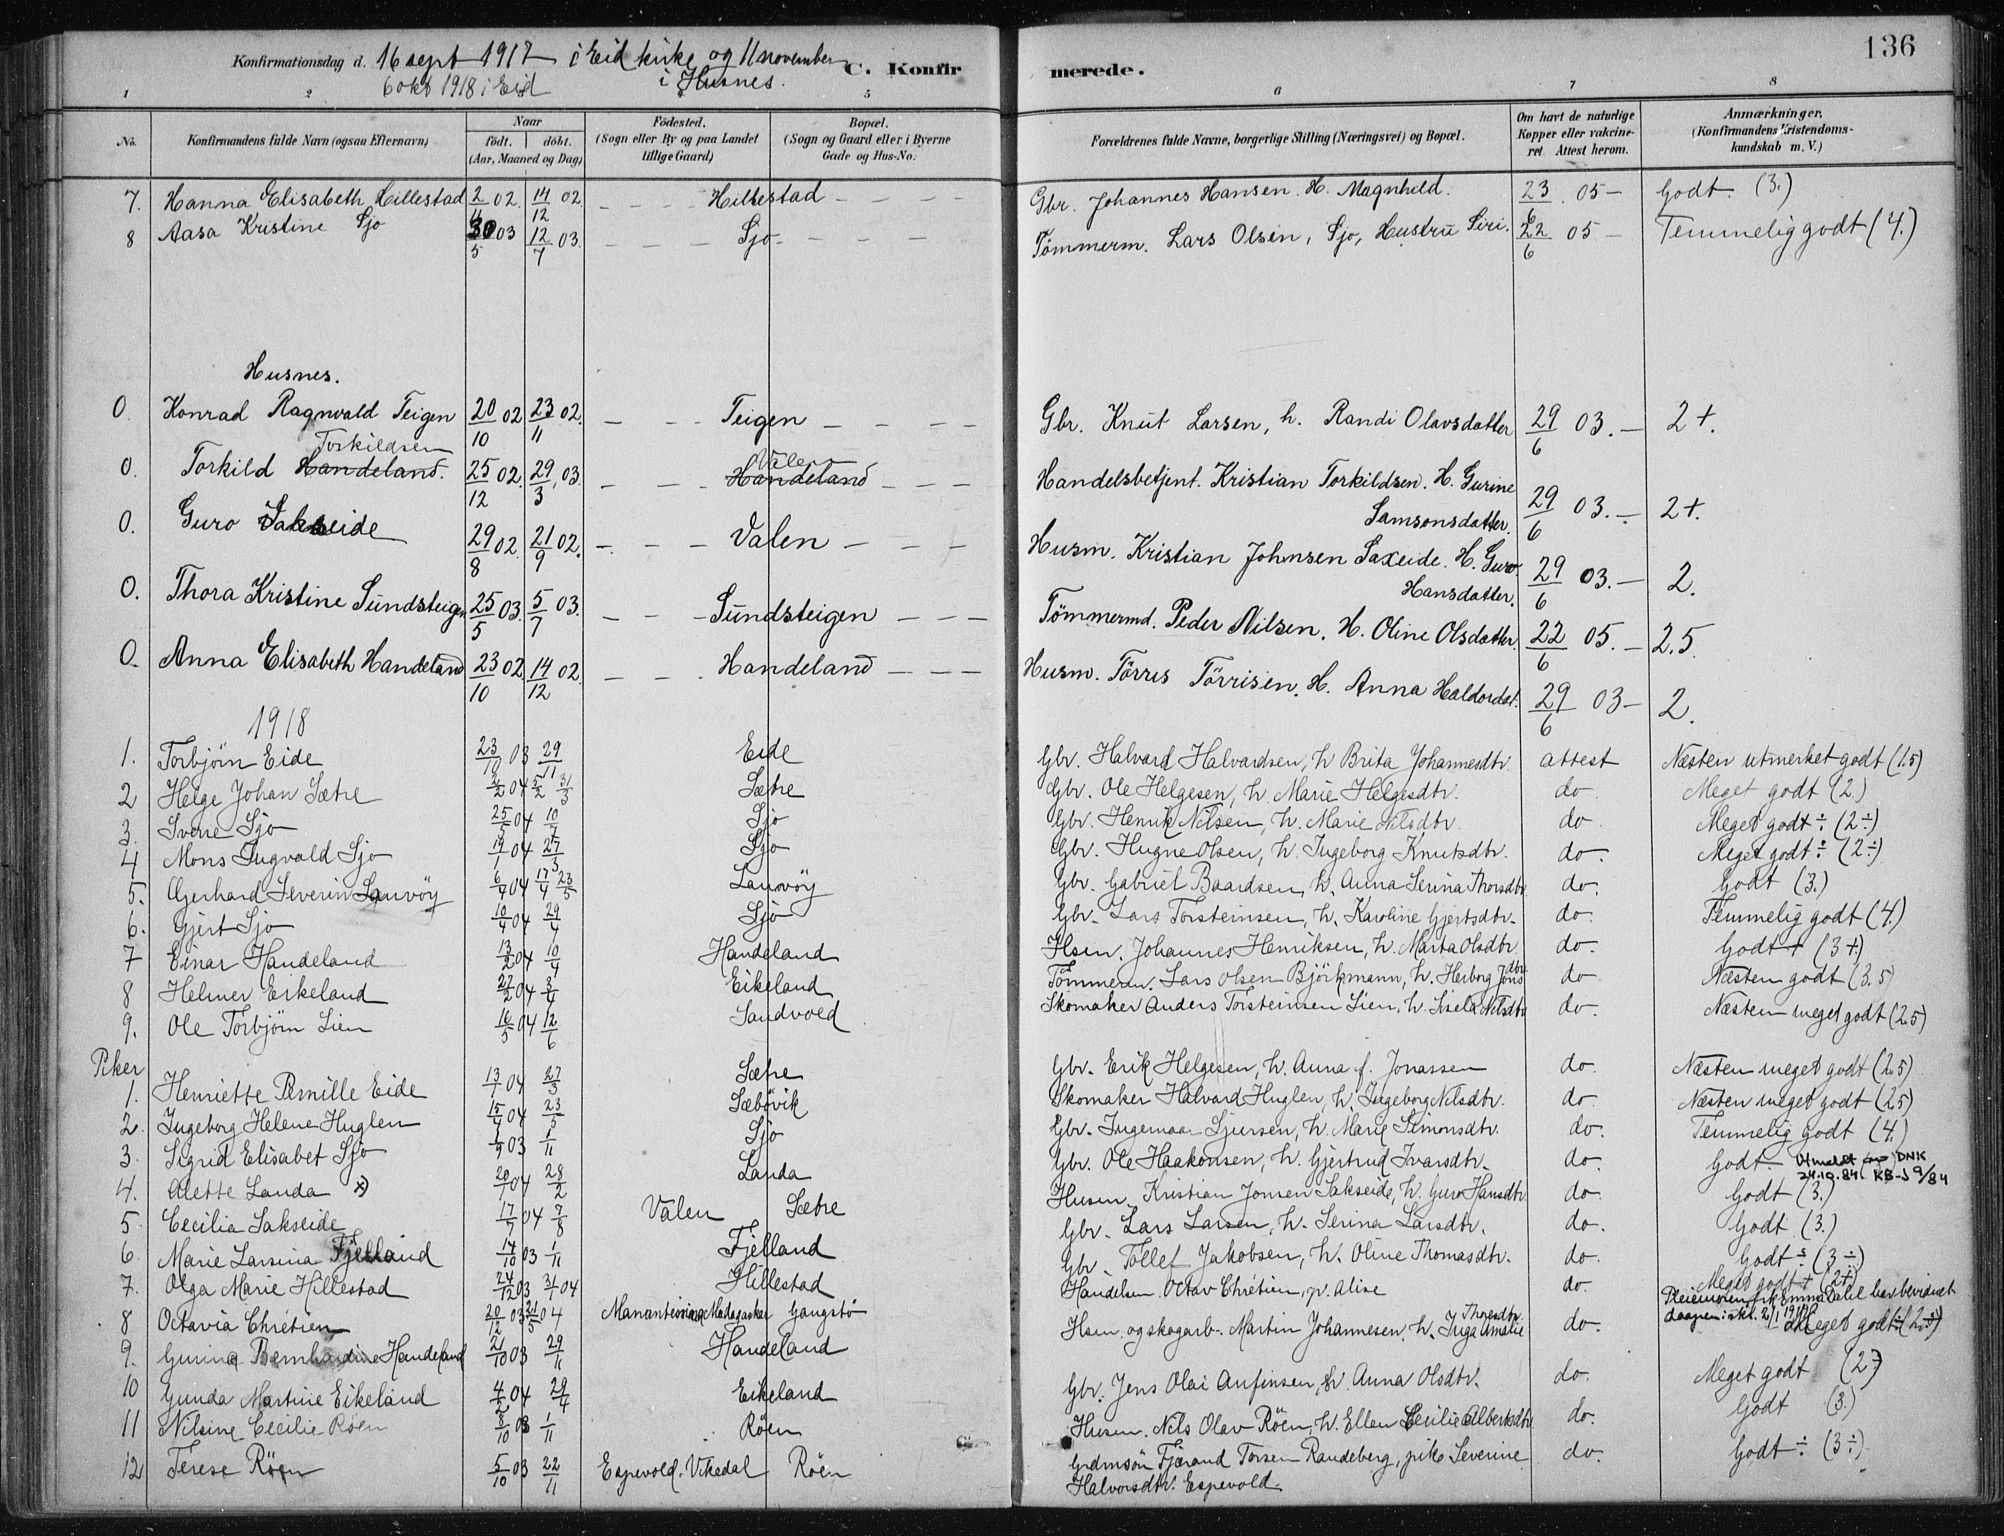 136
Konfirmationsdag d. 16 sept 1917 i Eid kirke og 11 november C. Konfir merede.
6 okt 1918 i Eid i Husnes.
1 2 5 6 7 8
No. Konfirmandens fulde Navn (ogsaa Efternavn) Naar födt. döbt. (Aar, Maaned og Dag) Födested. (Sogn eller By og paa Landet tillige Gaard) Bopæl. (Sogn og Gaard eller i Byerne Gade og Hus-No. Forældrenes fulde Navne, borgerlige Stilling (Næringsvei) og Bopæl. Om havt de naturlige Kopper eller vakcineret Attest herom. Anmærkninger. (Konfirmandens Kristendomskundskab m. V.)
7. Hanna Elisabeth Hillestad 2/11 02 14/12 02 Hillestad Gbr. Johannes Hansen. H. Magnhild. 23/6 05 — Godt. (3.)
8 Aasa Kristine Sjo 30/5 03 12/7 03. Sjo Tömmerm. Lars Olsen, Sjo, Hustru Siri. 22/6 05 — Temmelig godt (4.)
Husnes.
0. Konrad Ragnvald Teigen 20/10 02 23/11 02. Teigen Gbr. Knut Larsen, h. Randi Olavsdatter 29/6 03. — 2+.
0. Torkild Handeland. Torkildsen 25/12 02. 29/3, 03. Handeland Valen Handelsbetjent. Kristian Torkildsen. H. Gurine Samsonsdatter. 29/6 03. — 2+.
0. Guro Sakseide 29/8 02. 21/9 02. Valen Husm. Kristian Johnsen Saxeide. H. Guro Hansdatter. 29/6 03. — 2.
0. Thora Kristine Sundsteigen 25/5 03. 5/7 03. Sundsteigen Tömmermd. Peder Nilsen. H. Oline Olsdatter. 22/6 05. — 2.5
0. Anna Elisabeth Handeland 23/10 02. 14/12 02. Handeland Husm. Törres Törrisen. H. Anna Haldordat. 29/6 03 — 2.
1918
1. Torbjörn Eide 23/10 03 29/11 Eide Gbr. Halvard Halvardsen, h Brita Johannesdtr attest Næsten utmerket godt (1.5)
2 Helge Johan Sætre 2/2 04 5/2 31/3 Sætre Gbr. Ole Helgesen, h. Marie Helgesdtr. do. Meget godt (2.)
3. Sverre Sjo 25/5 04 10/7 Sjo Gbr. Henrik Nilsen, h. Marie Nilsdtr. do Meget godt ÷ (2÷)
4 Mons Ingvald Sjo 19/1 04 27/3 Sjo Gbr. Hugne Olsen, h. Ingeborg Knutsdtr. do. Meget godt ÷ (2÷)
5. Gerhard Severin Sanvöy 6/4 04 17/4 23/5 Sanvöy Gbr. Gabriel Baardsen, h. Anna Serina Thorsdtr do. Godt (3.)
6. Gjert Sjo 10/4 04 29/4 Sjo Gbr. Lars Torsteinsen, h. Karoline Gjertsdtr. do. Temmelig godt (4.)
7 Einar Handeland 13/2 04 10/4 Handeland Hsm. Johannes Henriksen, h. Marta Olsdtr do. Godt + (3+.)
8 Helmer Eikeland 27/2 04 3/4 Eikeland Tömmerm. Lars Olsen Björkmann, h. Herborg Jons dtr do Næsten godt (3.5)
9. Ole Torbjörn Lien 16/5 04 12/6 Sandvold Skomaker Anders Torsteinsen Lien, h. Sisela Nilsdtr do. Næsten meget godt (2.5)
Piker
1. Henriette Pernille Eide 13/1 04 27/3 Sætre Gbr. Erik Helgesen, h. Anna f. Jonassen do. Næsten meget godt (2.5)
2. Ingeborg Helene Huglen 15/4 04 23/5 Sæbövik Skomaker Halvard Huglen, h. Ingeborg Nilsdtr. do. Næsten meget godt (2.5)
3. Sigrid Elisabet Sjo 1/9 03 1/11 Sjo Gbr. Ingemar Sjursen, h. Marie Simonsdtr. do. Temmelig godt (4.)
4. Alette Landa x) 20/1 04 28/2 Landa Gbr. Ole Haakonsen, h. Gjertrud Ivarsdtr. do. Godt Utmeldt av DNK 24.10.84. KB-J 9/84
5 Cecilia Sakseide 17/7 04 7/8 Valen Sætre Husm. Kristian Jonsen Sakseide, h. Guro Hansdtr do. Godt (3.)
6. Marie Larsina Fjelland 14/10 03 1/11 Fjelland Gbr. Lars Larsen, h. Serina Larsdtr. do. Godt (3.)
7. Olga Marie Hillestad 24/12 03 3/1 04 Hillestad Gbr. Tollef Jakobsen, h. Oline Thomasdtr. do. Godt ÷ (3÷)
8 Octavia Chrétien 20/12 03 31/5 04 Madagasker Gangstö Handelsm. Octav Chrétien, p. Alise do. Meget godt + (2+) Pleiemoren frk Emma Dahl har bevidnet daapen i skr. 2/1 1918
9. Gurina Bernhardine Handeland 21/10 03 29/11 Handeland Hsm. og skogarb. Martin Johannesen, h. Inga Amalie Thoresdtr. do. Meget godt ÷ (2÷)
10 Gunda Martine Eikeland 4/2 04 24/4 Eikeland Gbr. Jens Olai Anfinsen, h. Anna Olsdtr. do. Meget godt (2)
11 Nilsine Cecilie Röen 8/10 03 1/11 Röen Husm. Nils Olav Röen, h. Ellen Cecilie Albertsdtr do. Godt (3.)
12 Terese Röen 5/10 03 22/11 Espevold, Vikedal Röen Grdmsön Fjærand Torsen Randeberg, pike Severine Halvorsdtr. Espevold do. Godt ÷ (3÷)